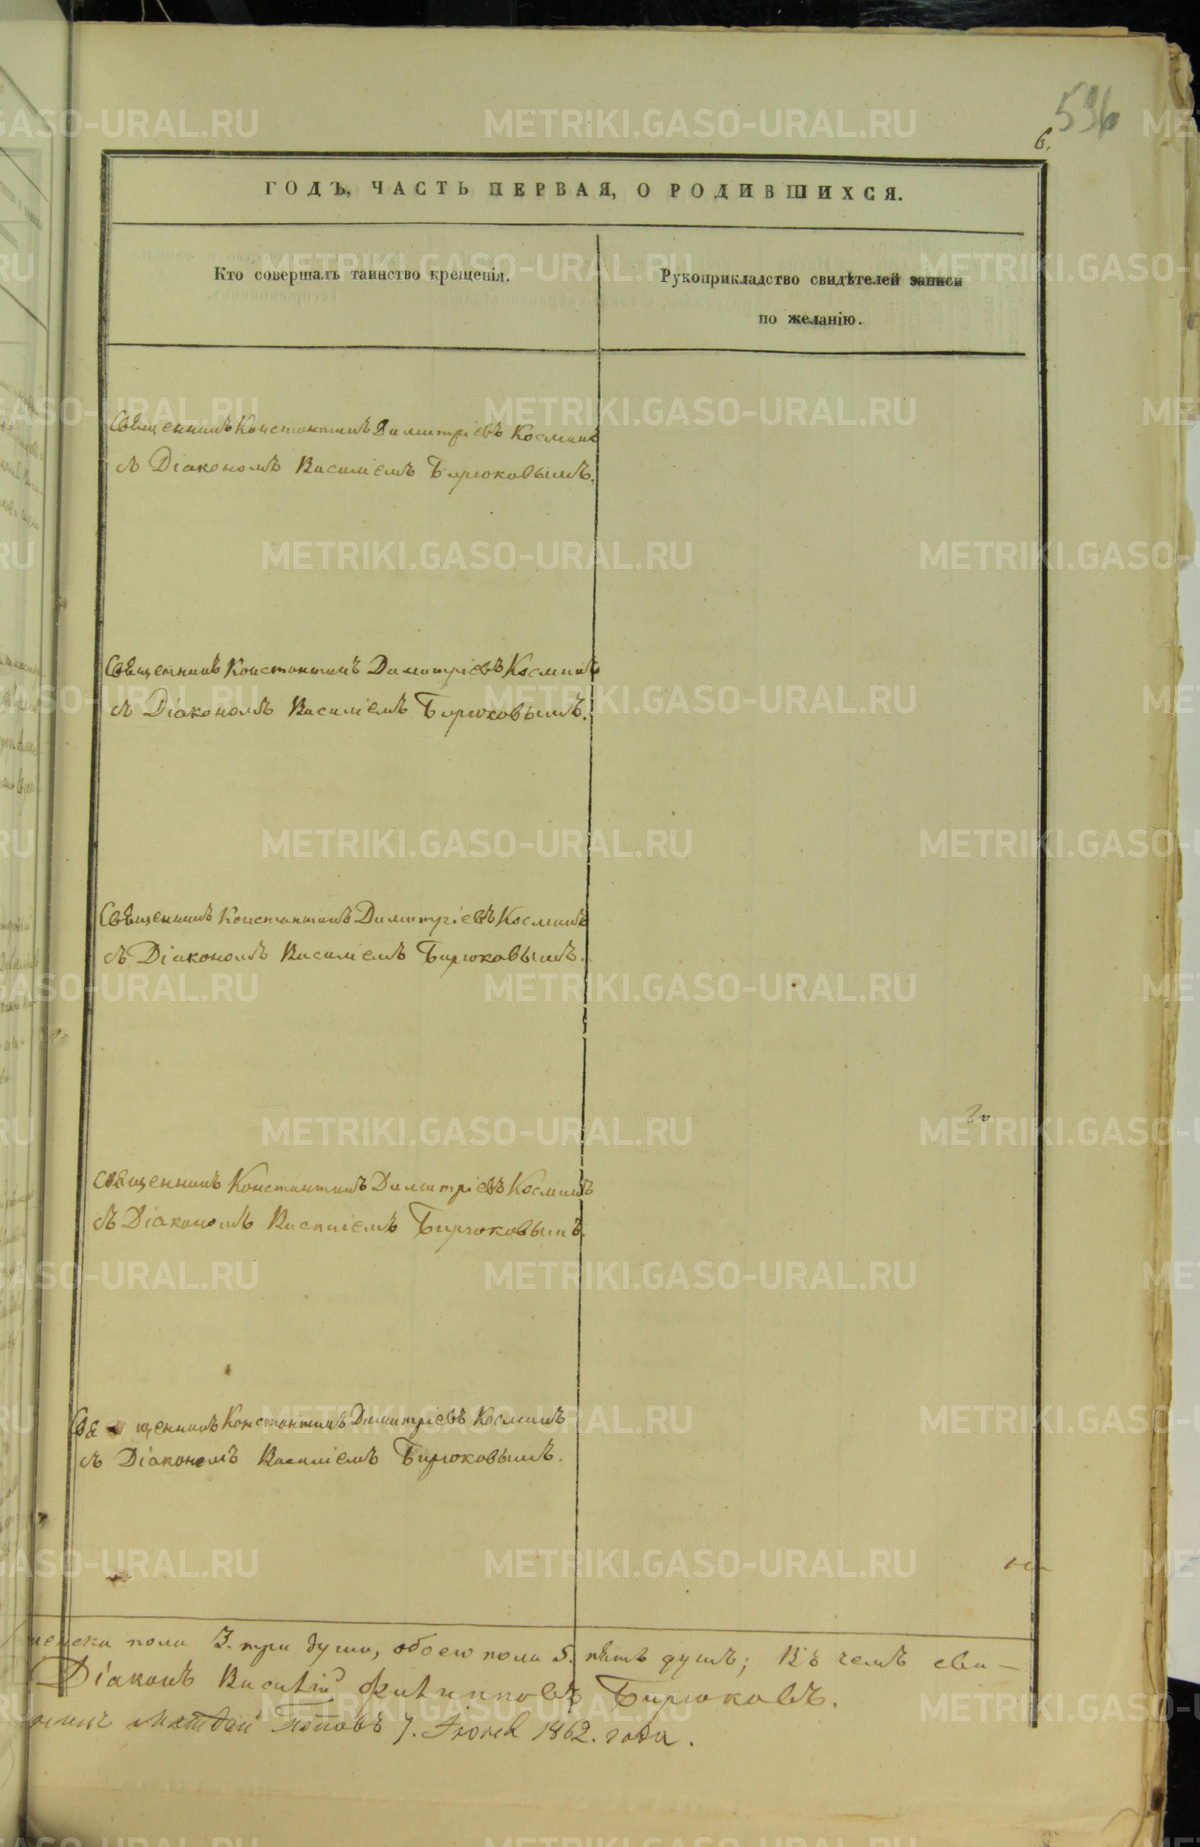 536
6.
ГОДЪ, ЧАСТЬ ПЕРВАЯ, О РОДИВШИХСЯ.
Кто совершалъ таинство крещенія.
Рукоприкладство свидѣтелей записи
по желанію.
Священникъ Константинъ Димитріевъ Косминъ
съ Діакономъ Василіемъ Бирюковымъ.
Священникъ Константинъ Димитріевъ Косминъ
съ Діакономъ Василіемъ Бирюковымъ.
Священникъ Константинъ Димитріевъ Косминъ
съ Діакономъ Василіемъ Бирюковымъ.
Священникъ Константинъ Димитріевъ Косминъ
съ Діакономъ Василіемъ Бирюковымъ.
Священникъ Константинъ Димитріевъ Косминъ
съ Діакономъ Василіемъ Бирюковымъ.
женска пола 3. три души, обоего пола 5. пять душъ; Въ чемъ сви-
Діаконъ Василій Филипповъ Бирюковъ.
Матвѣй Поповъ 7. 1862. года.
METRIKI.GASO-URAL.RU